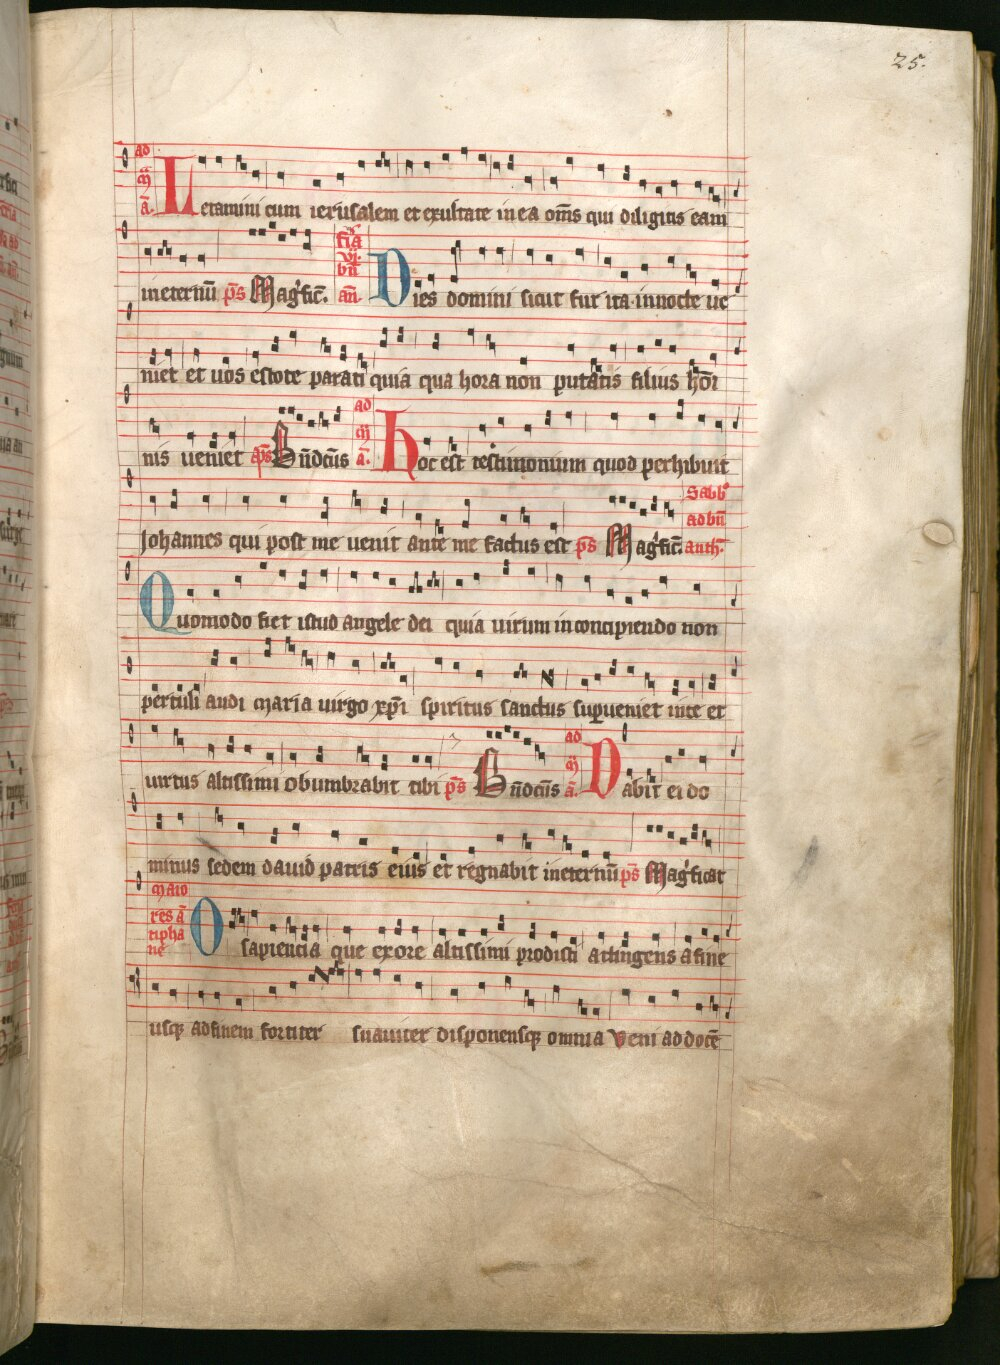 25.
ad m̄ a̅. Letamini cum ierusalem et exultate in ea om̄s qui diligitis eam
ineternū p̄s Mag'fic̄. f'ia vi. bn̄ an̄. Dies domini sicut fur ita in nocte ue
niet et uos estote parati quia qua hora non putatis filius hōi
nis ueniet p̄s Bn̄dc̄us ad m̄ a̅. Hoc est testimonium quod perhibuit
Johannes qui post me uenit ante me factus est p̄s Mag'fic̄. Sabb'o ad bn̄ anth'.
Quomodo fiet istud angele dei quia uirum in concipiendo non
pertuli audi maria uirgo xp̄i spiritus sanctus sup̱ueniet inte et
uirtus altissimi obumbrabit tibi p̄s Bn̄dc̄us ad m̄ a̅. Dabit ei do
minus sedem dauid patris eius et regnabit ineternū p̄s Mag'ficat
maio res a̅ tipha ne O sapiencia que exore altissimi prodisti attingens a fine
usq̨ ad finem fortiter suauiter disponensq̨ omnia Veni ad docē